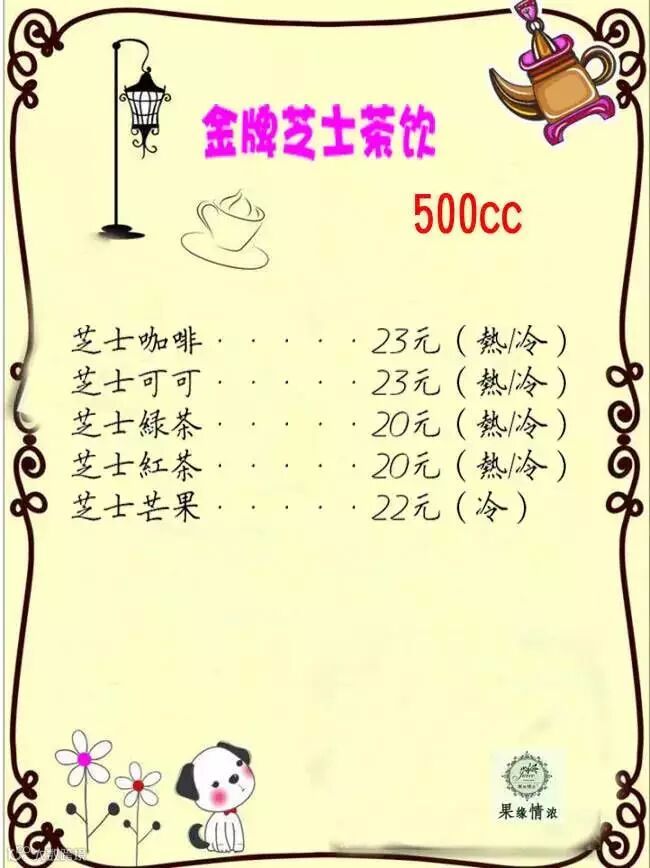 金牌芝士茶饮
500cc
芝士咖啡 · · · · · 23元（熱/冷）
芝士可可 · · · · · 23元（熱/冷）
芝士綠茶 · · · · · 20元（熱/冷）
芝士紅茶 · · · · · 20元（熱/冷）
芝士芒果 · · · · · 22元（冷）
果缘情浓